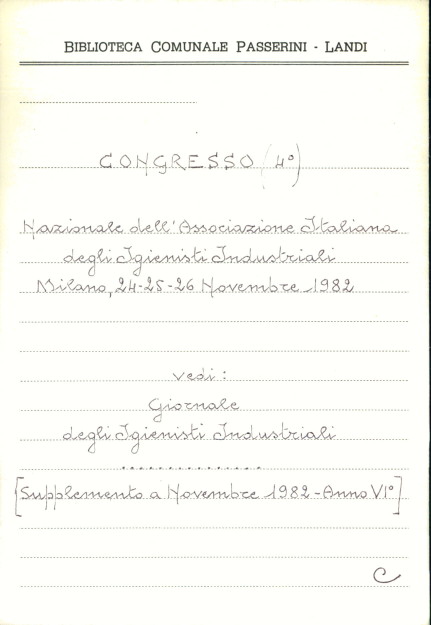 BIBLIOTECA COMUNALE PASSERINI - LANDI
CONGRESSO (4°)
Nazionale dell'Associazione Italiana
degli Igienisti Industriali
Milano, 24-25-26 Novembre 1982
vedi :
Giornale
degli Igienisti Industriali
...............
[Supplemento a Novembre 1982 - Anno VI°]
C